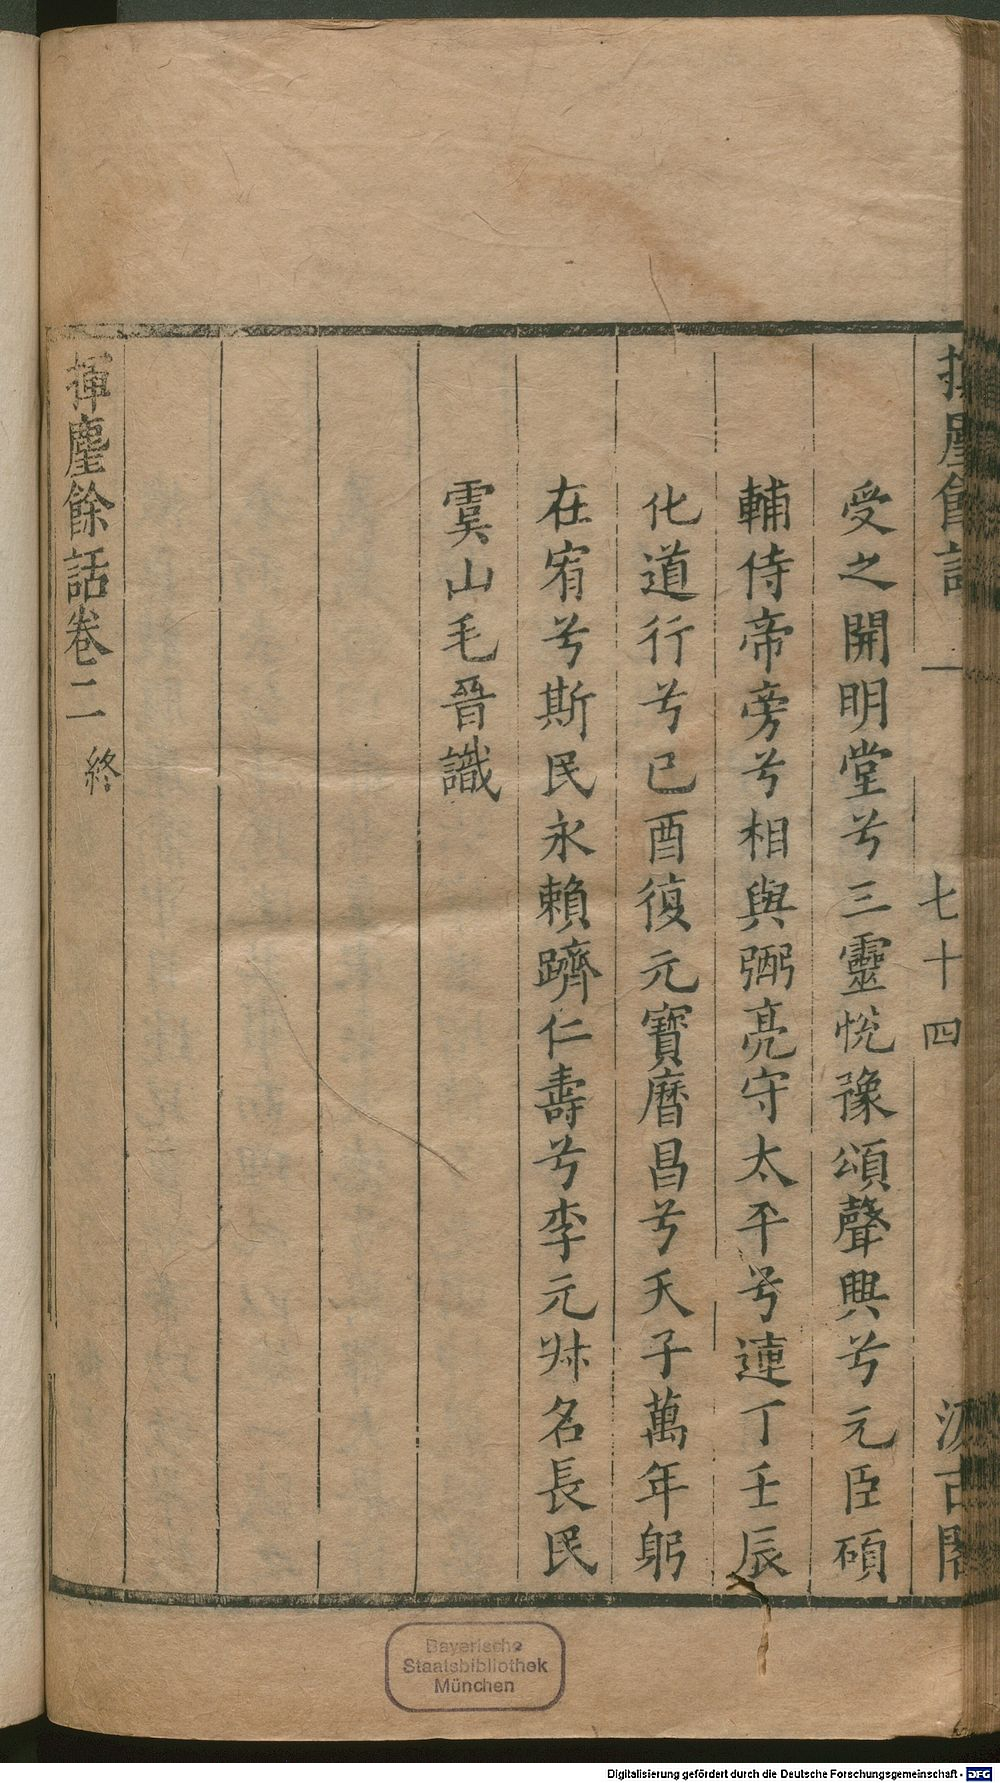 揮麈餘話
一
七十四
汲古閣
受之開明堂兮三靈悅豫頌聲興兮元臣碩
輔侍帝旁兮相與弼亮守太平兮連丁壬辰
化道行兮已酉復元寶曆昌兮天子萬年躬
在宥兮斯民永賴躋仁壽兮李元叔名長民
虞山毛晉識
揮麈餘話卷二 終
Bayerische
Staatsbibliothek
München
Digitalisierung gefördert durch die Deutsche Forschungsgemeinschaft - DFG